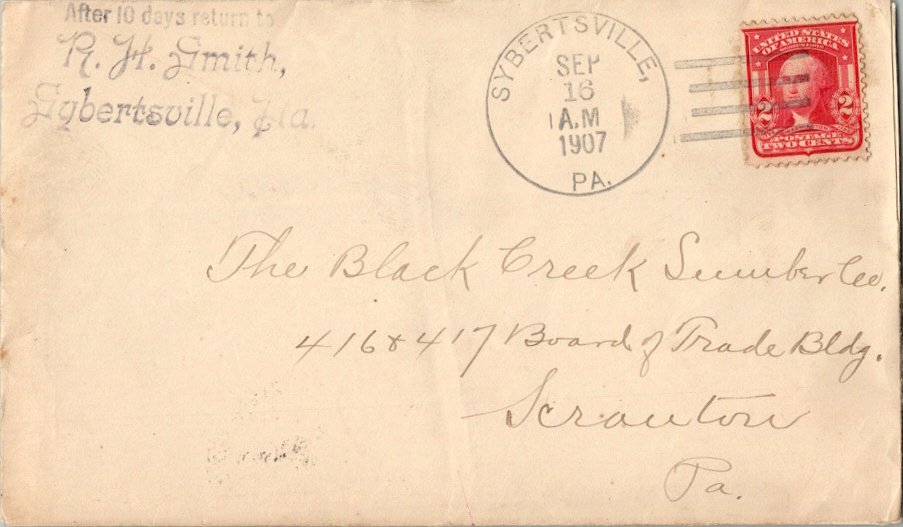 After 10 days return to
R. H. Smith,
Sybertsville, Pa.
SYBERTSVILLE,
SEP
16
1 A.M
1907
PA.
UNITED STATES
OF AMERICA
2 2
POSTAGE
TWO CENTS
The Black Creek Lumber Co.
416 & 417 Board of Trade Bldg.
Scranton
Pa.